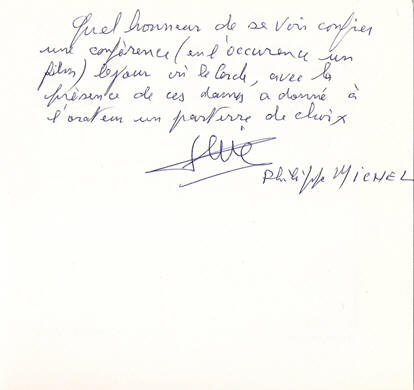 Quel honneur de se voir confier
une conférence (en l'occurence un
film) le jour où le Cercle, avec la
présence de ces dames a donné à
l'orateur un parterre de choix
Philippe MICHEL